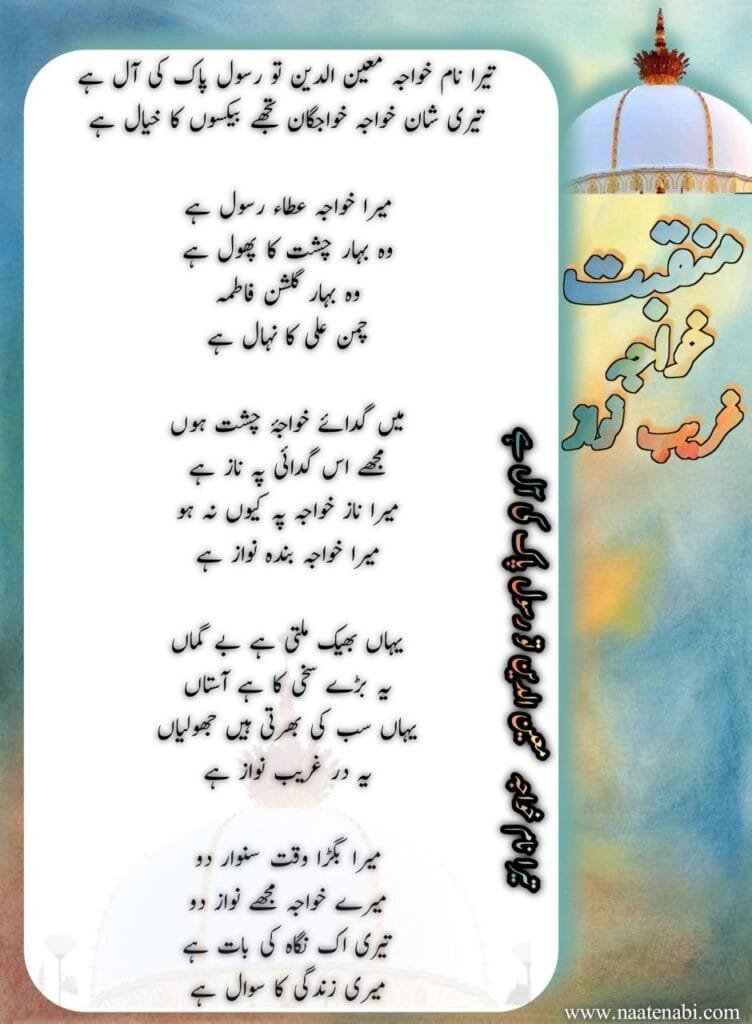 تیرا نام خواجہ معین الدین تو رسول پاک کی آل ہے
تیری شان خواجہ خواجگان تجھے بیکسوں کا خیال ہے
میرا خواجہ عطاء رسول ہے
وہ بہار چشت کا پھول ہے
وہ بہار گلشن فاطمہ
چمن علی کا نہال ہے
میں گدائے خواجۂ چشت ہوں
مجھے اس گدائی پہ ناز ہے
میرا ناز خواجہ پہ کیوں نہ ہو
میرا خواجہ بندہ نواز ہے
یہاں بھیک ملتی ہے بے گماں
یہ بڑے سخی کا ہے آستاں
یہاں سب کی بھرتی ہیں جھولیاں
یہ در غریب نواز ہے
میرا بگڑا وقت سنوار دو
میرے خواجہ مجھے نواز دو
تیری اک نگاہ کی بات ہے
میری زندگی کا سوال ہے
منقبت
خواجہ
غریب نواز
تیرا نام خواجہ معین الدین تو رسول پاک کی آل ہے
www.naatenabi.com